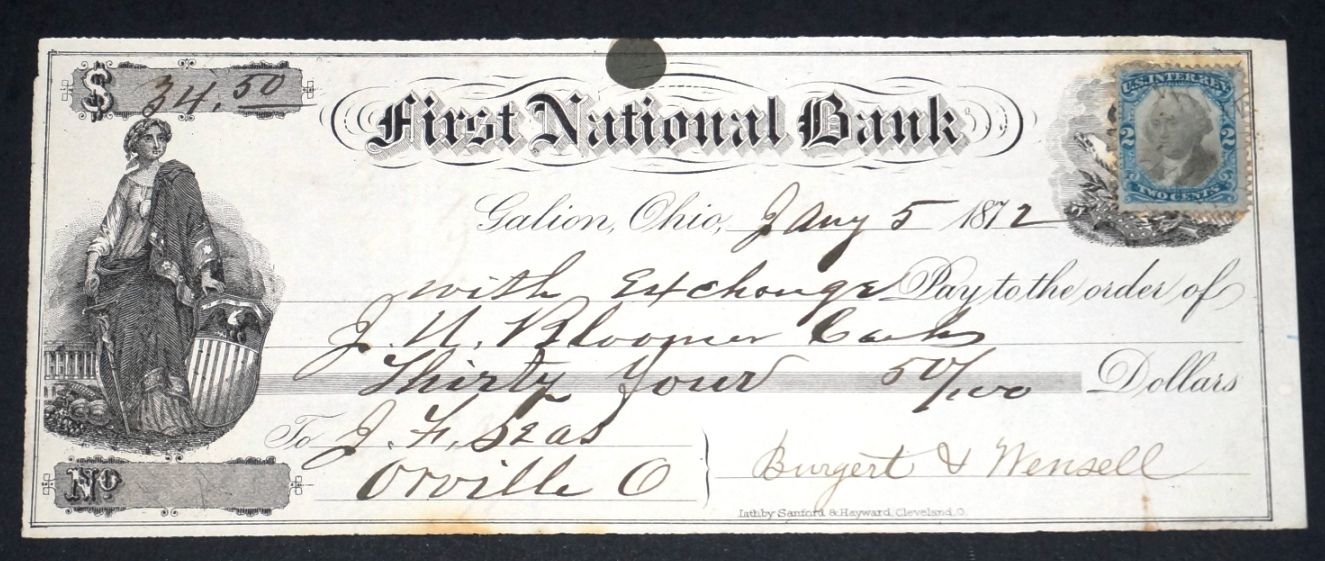 $ 34.50
First National Bank
U.S. INTER. REV.
2 2
TWO CENTS
Galion, Ohio, Jany 5 1872
with Exchange Pay to the order of
J. U. Bloomer Cash
Thirty Four 50/100 Dollars
To J. F.
Orville O
Burgert & Wensell
No
Lith by Sanford & Hayward, Cleveland, O.